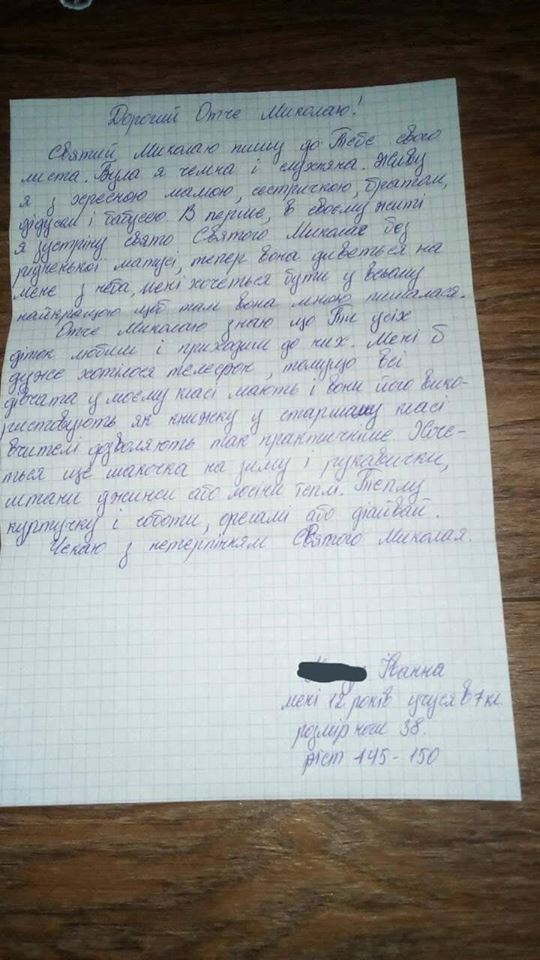 Дорогий Отче Миколаю!
Святий Миколаю пишу до Тебе свого
листа. Була я чемна і слухняна. Живу
я з хресною мамою, сестричкою, братом,
дідусем і бабусею В перше, в своєму житі
я зустріну свято Святого Миколая без
рідненької матусі, тепер вона дивиться на
мене з неба, мені хочеться бути у всьому
найкращою щоб там вона мною пишалася.
Отче Миколаю знаю що Ти усіх
діток любиш і приходиш до них. Мені б
дуже хотілося телефон, томущо всі
дівчата у моєму класі мають і вони його вико-
ристовують як книжку у старшому класі
вчителі дозволяють так практичніше. Хоче-
ться ще шапочка на зиму і рукавички,
штани джинси або лосіни теплі. Теплу
курточку і чоботи, орегамі або
Чекаю з нетерпінням Святого Миколая.
Іванна
мені 12 років учуся в 7 кл.
розмір ноги 38.
ріст 145-150